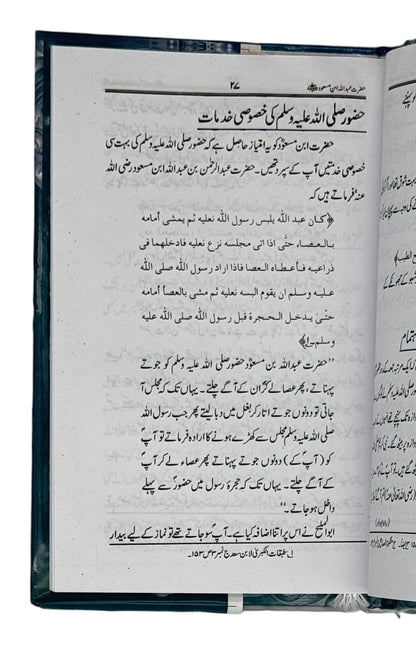 حضرت عبداللہ ابن مسعودؓ ۲۷
حضور صلی اللہ علیہ وسلم کی خصوصی خدمات
حضرت ابن مسعودؓ کو یہ امتیاز حاصل ہے کہ حضور صلی اللہ علیہ وسلم کی بہت سی
خصوصی خدمتیں آپ کے سپرد تھیں۔ حضرت عبدالرحمٰن بن عبداللہ ابن مسعود رضی اللہ
عنہ فرماتے ہیں کہ
﴿کان عبد اللّٰہ یلبس رسول اللّٰہ نعلیہ ثم یمشی أمامه
بالعصاء حتّٰی اذا اتی مجلسه نزع نعلیه فادخلهما فی
ذراعیه فأعطاه العصا فاذا اراد رسول اللّٰہ صلی اللّٰہ
علیہ وسلم ان یقوم البسه نعلیه ثم مشی بالعصا أمامه
حتّٰی یدخل الحجرة قبل رسول اللّٰہ صلی اللّٰہ علیه
وسلم۔﴾
’’حضرت عبداللہ بن مسعودؓ حضور صلی اللہ علیہ وسلم کو جوتے
پہناتے، پھر عصا لے کر ان کے آگے چلتے۔ یہاں تک کہ مجلس آ
جاتی تو دونوں جوتے اتار کر بغل میں دبا لیتے پھر جب رسول اللہ
صلی اللہ علیہ وسلم مجلس سے کھڑے ہونے کا ارادہ فرماتے تو آپؐ
کو (آپ کے) دونوں جوتے پہناتے پھر عصا لے کر آپؐ
کے آگے چلتے۔ یہاں تک کہ حجرۂ رسول میں حضورؐ سے پہلے
داخل ہو جاتے۔‘‘
ابوالملیح نے اس پر اتنا اضافہ کیا ہے۔ آپؐ سو جاتے تھے تو نماز کے لیے بیدار
۱۔ طبقات الکبریٰ لابن سعد ج نمبر ۳ ص ۱۵۳۔
اہتمام